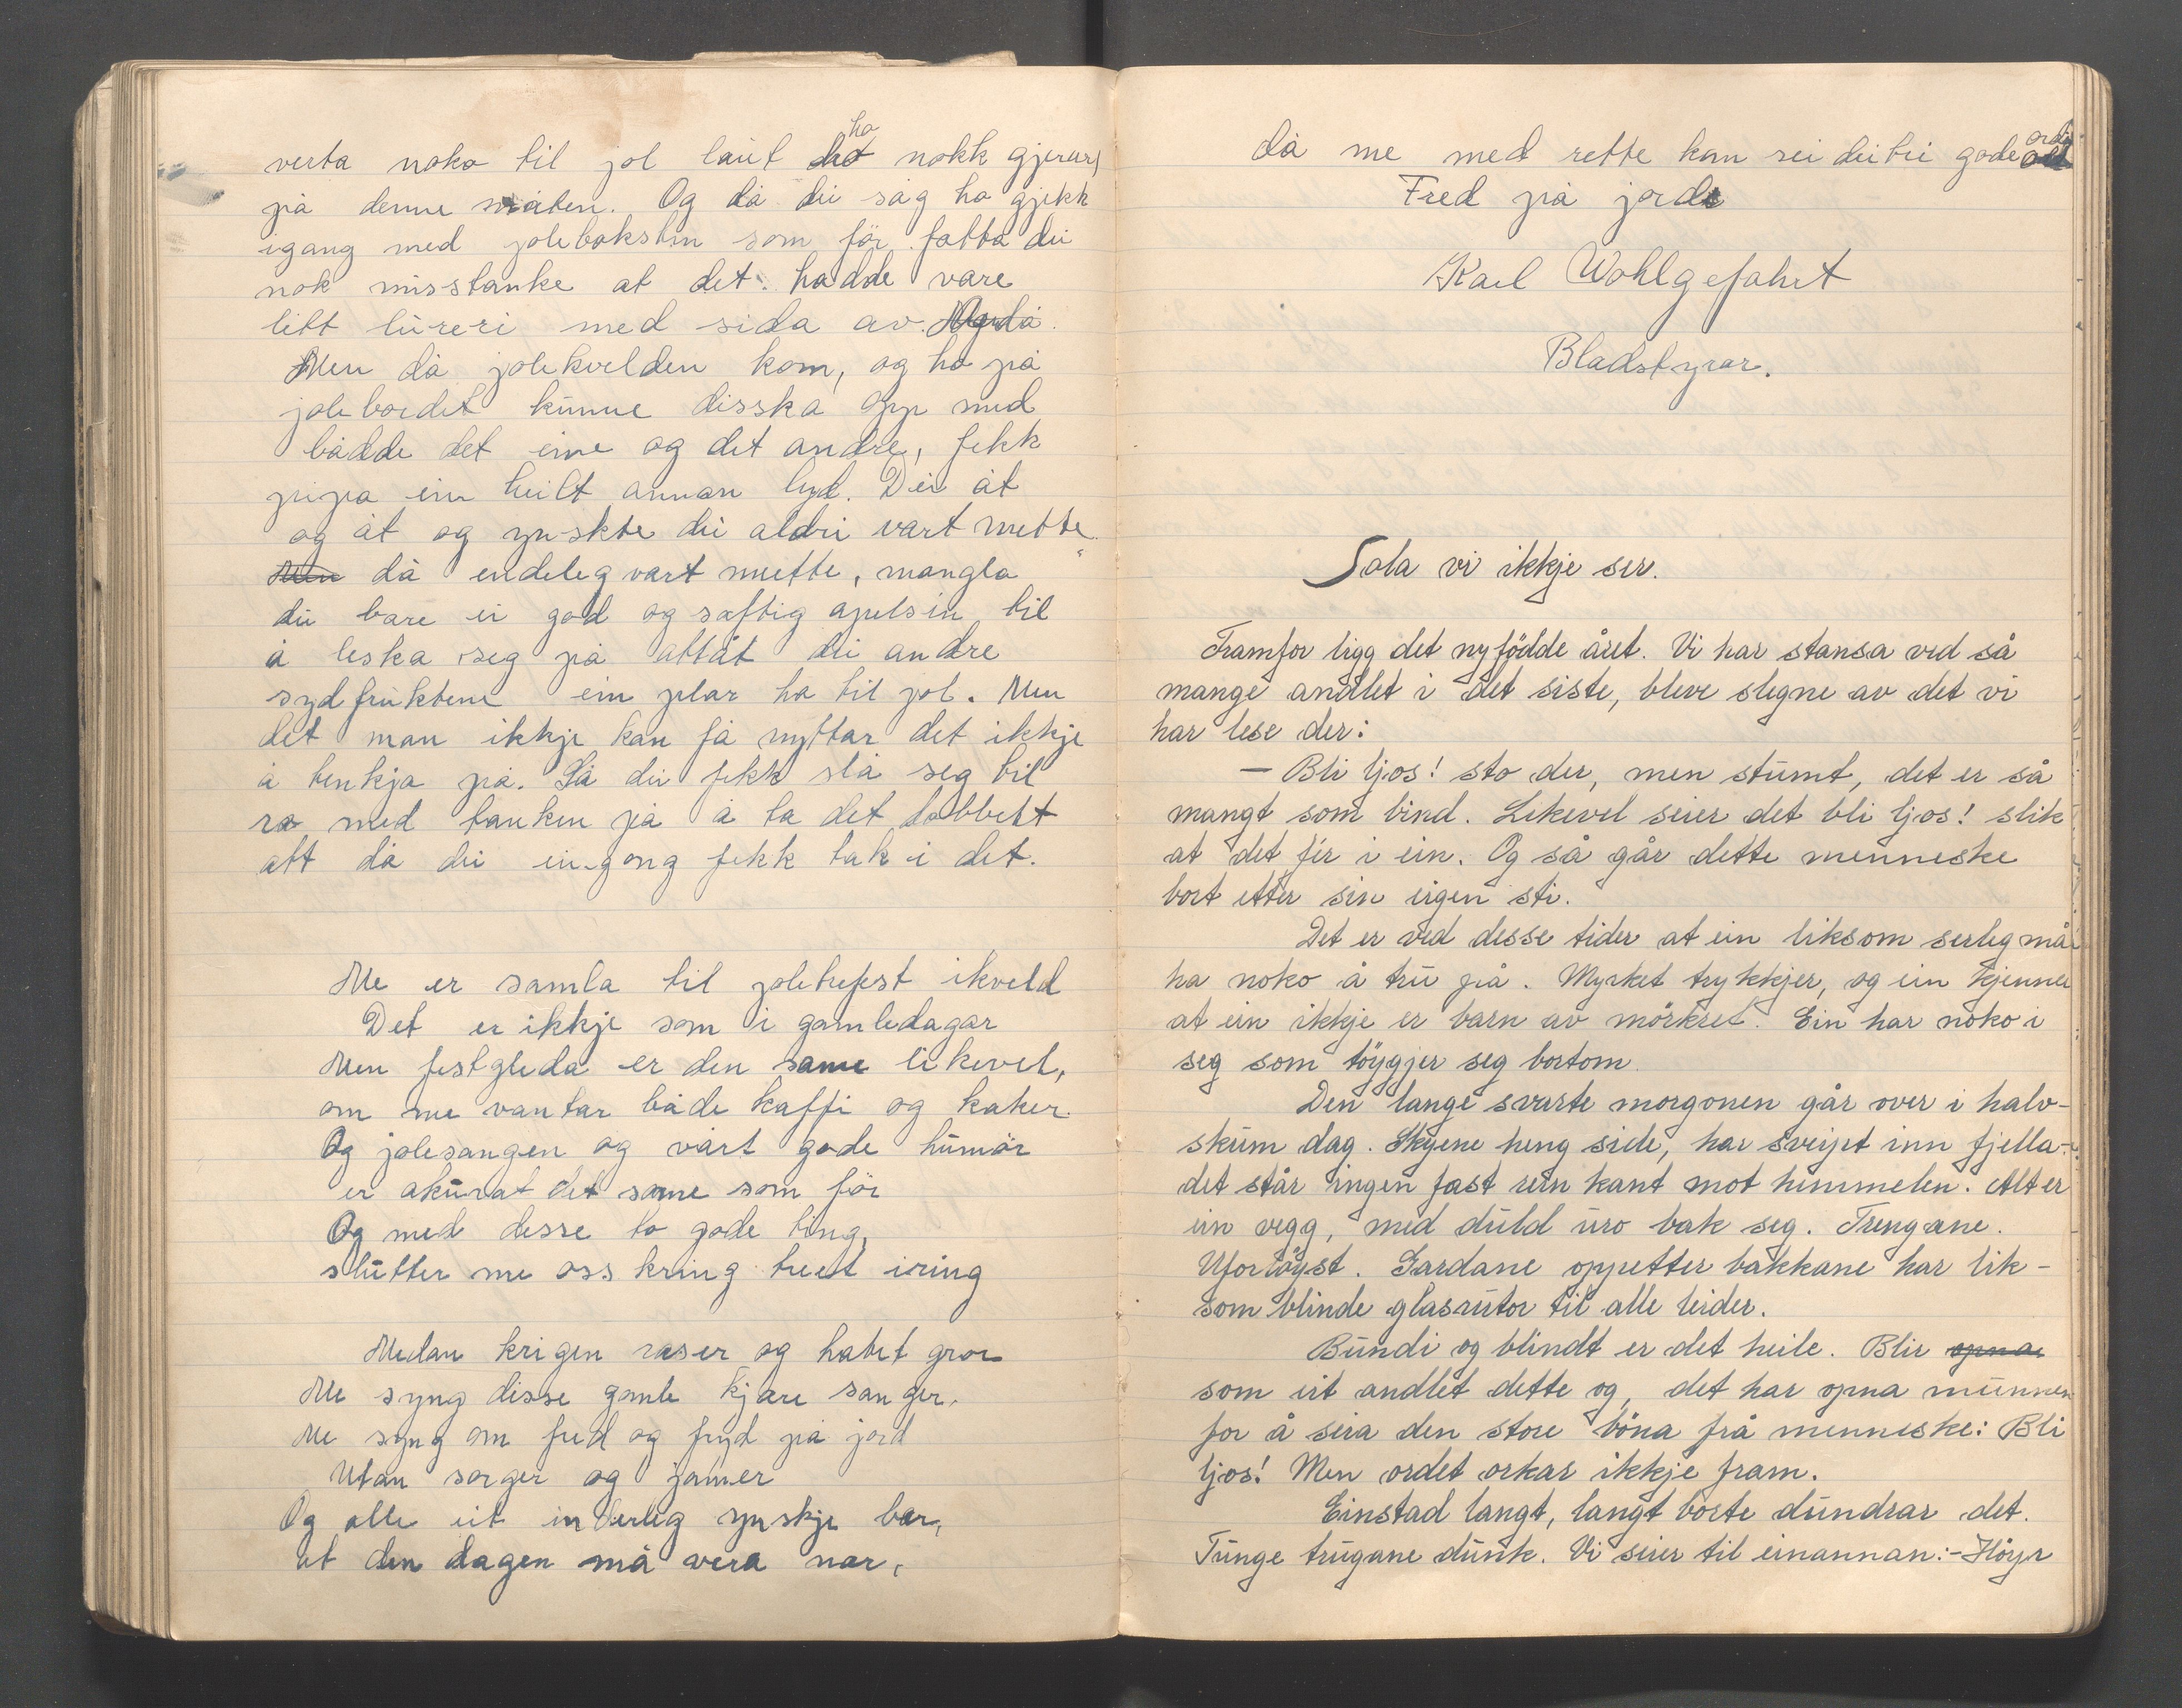 verta noko til jol laut ho nokk gjerurg
på denne måten. Og då dei såg ho gjekk
igang med jolebakstn som för fatta dei
nok misstanke at det hadde vare
litt lureri med sida av. Og då
Men då jolekvelden kom, og ho på
jolebordet kunne disska opp med
bådde det eine og det andre, fekk
pipa ein heilt annan lyd. Dei åt
og åt og ynskte dei aldri vart mette.
Men då endeleg vart mette, mangla
dei bare ei god og saftig apelsin til
å leska seg på attåt dei andre
sydfruktene ein plar ha til jol. Men
det man ikkje kan få nyttar det ikkje
å tenkja på. Så dei fekk slå seg til
ro med tanken på å ta det dobbelt
att då dei eingong fekk tak i det.
Me er samla til joletrefest ikveld
Det er ikkje som i gamledagar
Men festgleda er den same likevel,
om me vantar både kaffi og kaker.
Og jolesangen og vårt gode humör
er akurat det same som för
Og med desse to gode ting,
slutter me oss kring treet iring
Medan krigen raser og hatet gror
Me syng disse gamle kjære sanger.
Me syng om fred og fryd på jord
Utan sorger og jamer
Og alle eit inderleg ynskje bær,
at den dagen må vera nær,
då me med rette kan sei dei tri gode ordi
Fred på jord
Karl Wohlgefahrt
Bladstyrar.
Sola vi ikkje ser.
Framfor ligg det nyfödde året. Vi har stansa ved så
mange andlet i det siste, bleve slegne av det vi
har lese der:
— Bli ljos! sto der, men stumt, det er så
mangt som bind. Likevel seier det bli ljos! slik
at det fér i ein. Og så går dette menneske
bort etter sin eigen sti.
Det er ved desse tider at ein liksom serleg må
ha noko å tru på. Myrket trykkjer, og ein kjenner
at ein ikkje er barn av mörkret. Ein har noko i
seg som töygjer seg bortom.
Den lange svarte morgonen går over i halv-
skum dag. Skyene heng side, har sveipt inn fjella-
det står ingen fast rein kant mot himmelen. Alt er
ein vegg, med duld uro bak seg. Trengane.
Uforlöyst. Gardane oppetter bakkane har lik-
som blinde glasrutor til alle leider.
Bundi og blindt er det heile. Blir opna
som eit andlet dette og, det har opna munnen
for å seia den store böna frå menneske: Bli
ljos! Men ordet orkar ikkje fram.
Einstad langt, langt borte dundrar det.
Tunge trugane dunk. Vi seier til einannan:- Höyr